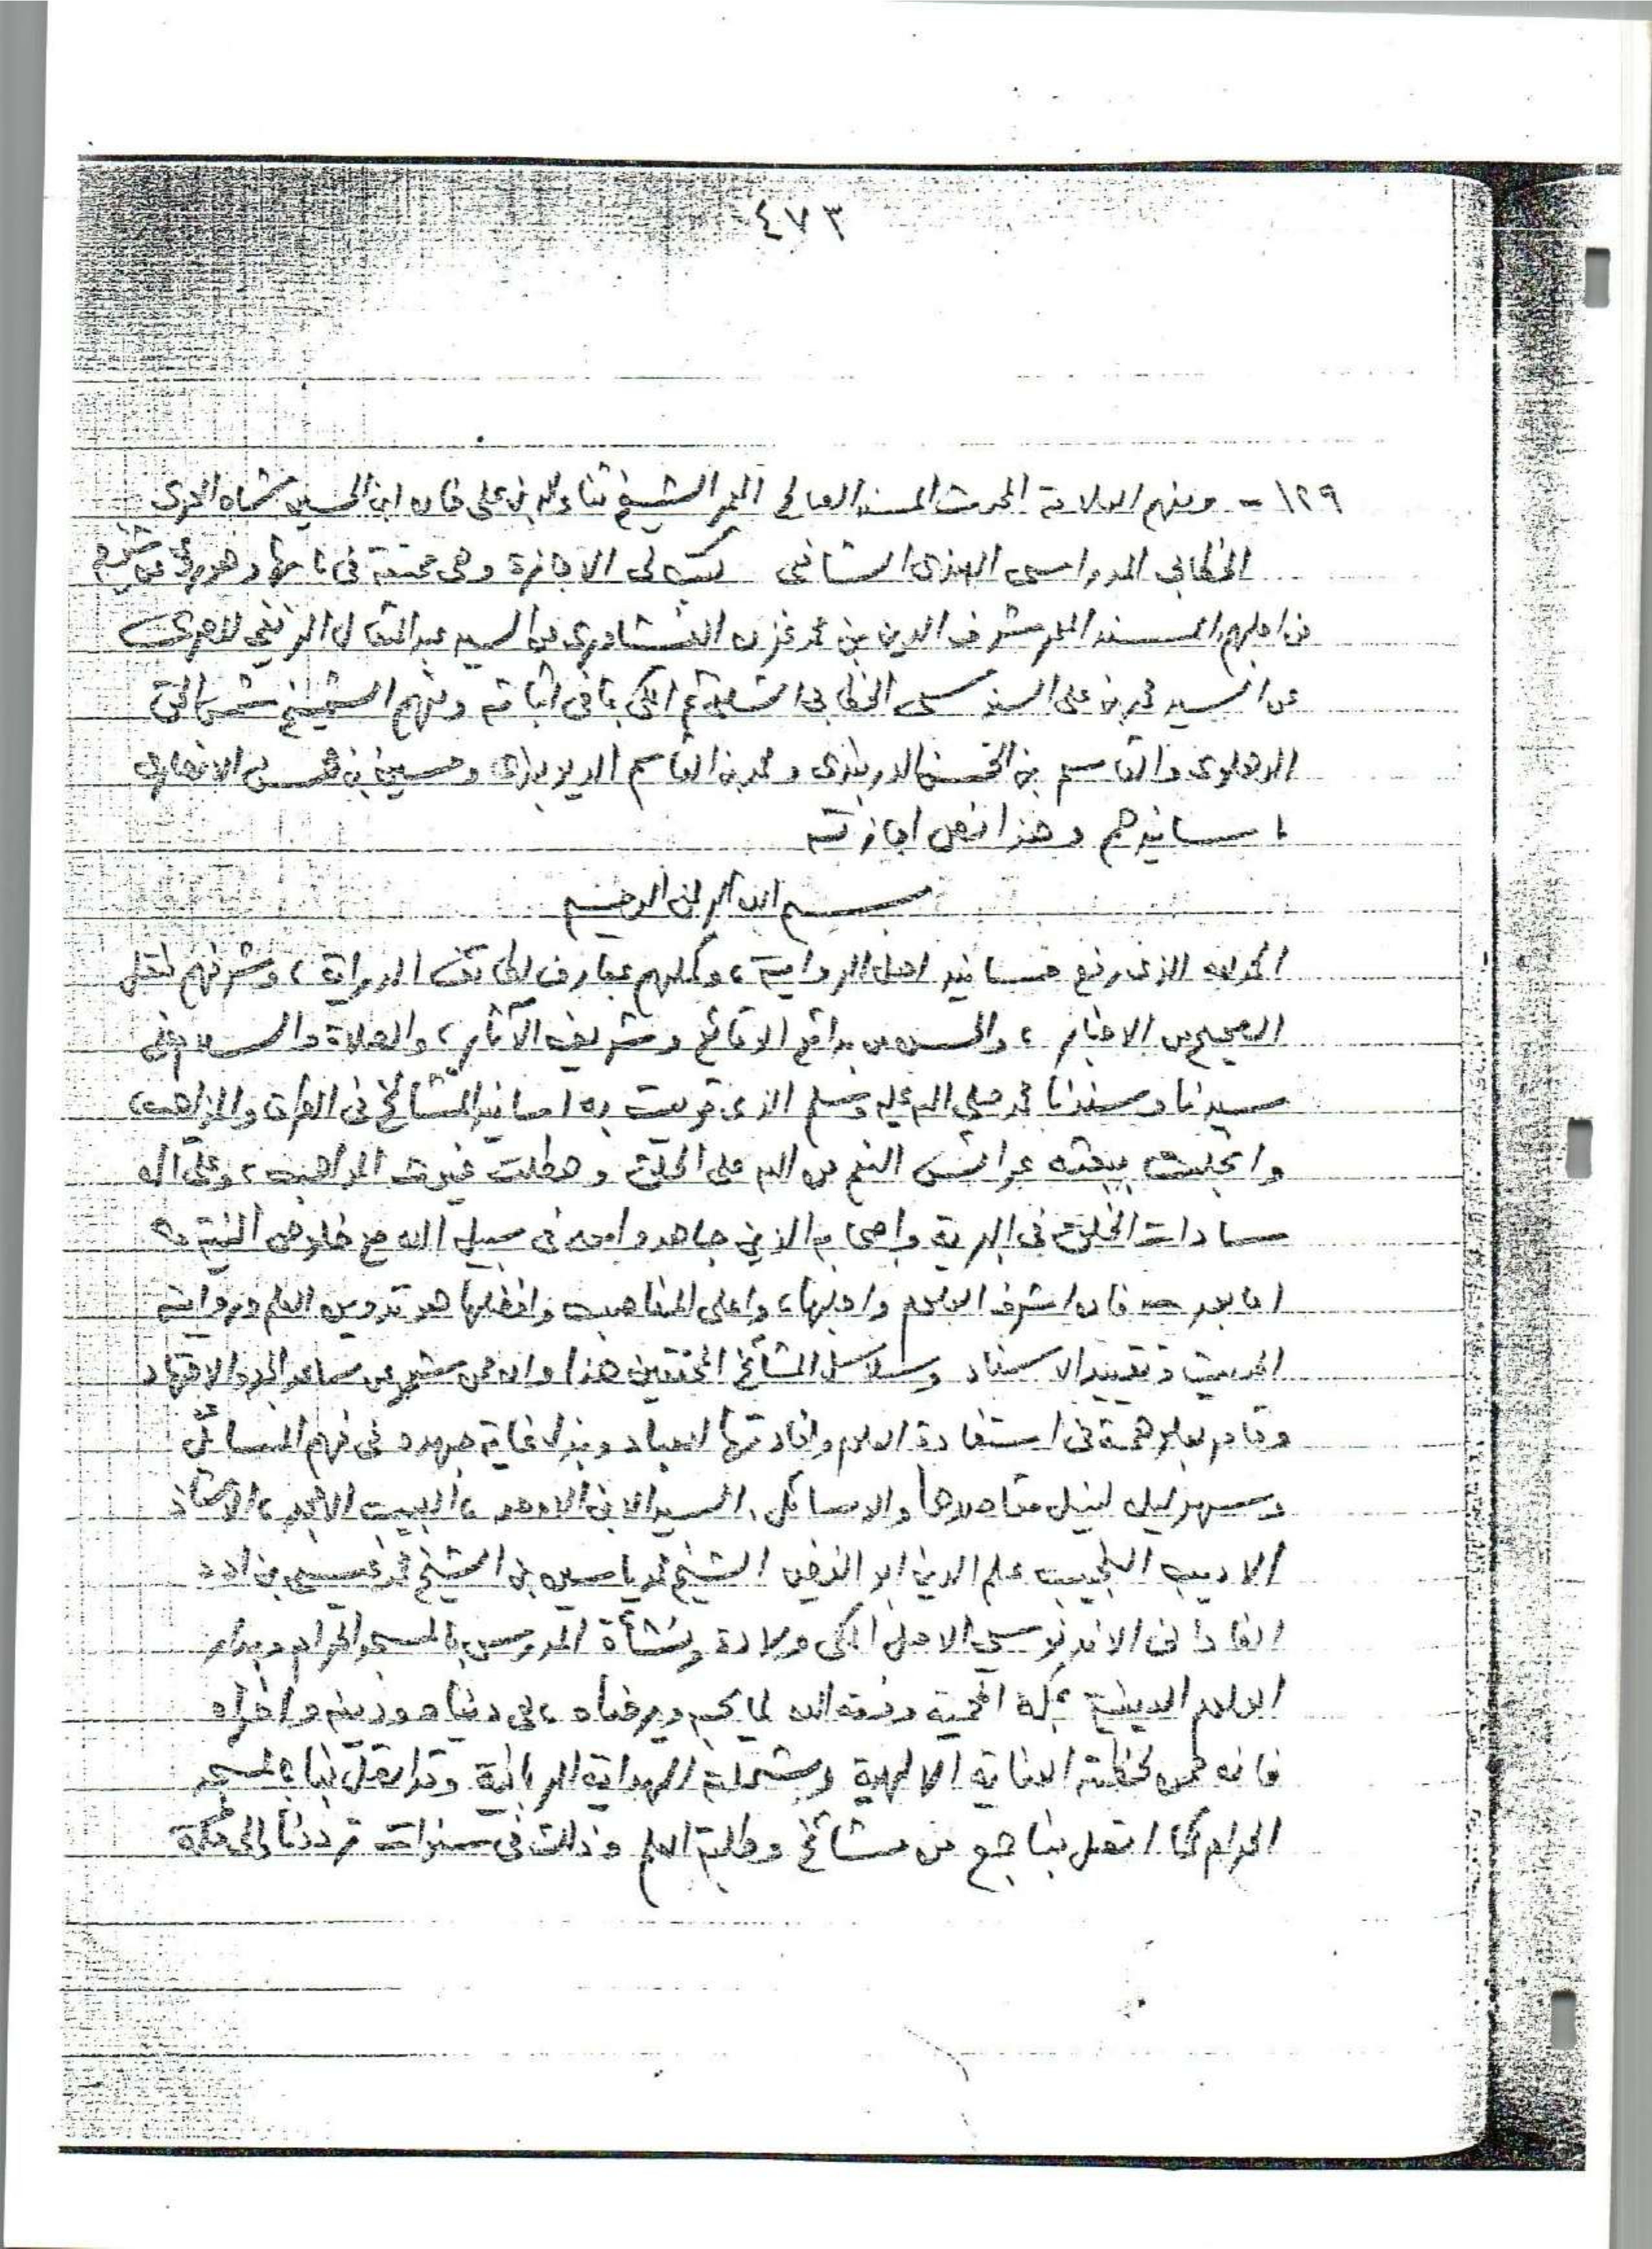 ٤٧٣
١٢٩ - ومنهم العلامة المحدث المسند العالم المعمر الشيخ ثناء الله بن علي خان ابن الحسين شاه
الخطابي المدراسي الهندي الشافعي كتب لي الاجازة وهي مختومة في وهو يروي عن
من اجلهم المسند المعمر شرف الدين بن محمد عن السيد عبد المتعال الزيني
عن السيد محمد بن علي السنوسي الخطابي الشلفي المكي بما في اثباته ومنهم الشيخ شمس الحق
الدهلوي والقاسم بن الحسن الدربندي ومحمد بن القاسم وحسين بن محسن الانصاري
باسانيدهم وهذا نص اجازته
بسم الله الرحمن الرحيم
الحمد لله الذي رفع مسانيد اهل الرواية، وكملهم بمعارف لطائف الدراية، وشرفهم بنقل
الصحيح من الاخبار، والحسن من الوقائع وشريف الآثار، والصلاة والسلام على
سيدنا وسندنا محمد صلى الله عليه وسلم الذي قويت به اسانيد المشائخ في الطرائق والمذاهب،
وانجلت ببعثته عرائس النعم من الله على الخلق وهطلت غيوث المواهب، وعلى آله
سادات الخلق في البرية واصحابه الذين جاهدوا معه في سبيل الله مع خلوص النية
اما بعد - فان اشرف العلوم واجلها، واعلى المناصب وافضلها هو تدوين العلم ورواية
الحديث وتقييد الاسناد وسلاسل المشائخ المحققين هذا وان ممن شمر عن ساعد الجد والاجتهاد
وقام بعلو همة في استفادة العلوم وافادتها للعباد وبذل غاية جهده في فهم المسائل
وسهر ليله لنيل مقاصدها والوسائل، السيد الابن الاوحد، اللبيب الامجد، الاستاذ
الاديب النجيب علم الدين ابو الفيض الشيخ محمد ياسين بن الشيخ محمد عيسى بن اودد
الفاداني الاندنوسي الاصل المكي ولادة ونشأة المدرس بالمسجد الحرام وبدار
العلوم الدينية بمكة المحمية وفقه الله لما يحبه ويرضاه، في دنياه ودينه واخراه
فانه ممن لحظته العناية الالهية وشملته الهداية الربانية وقد اتصل بنا بالمسجد
الحرام كما اتصل بنا جمع من مشائخ وطلبة العلم وذلك في سنوات ترددنا الى مكة